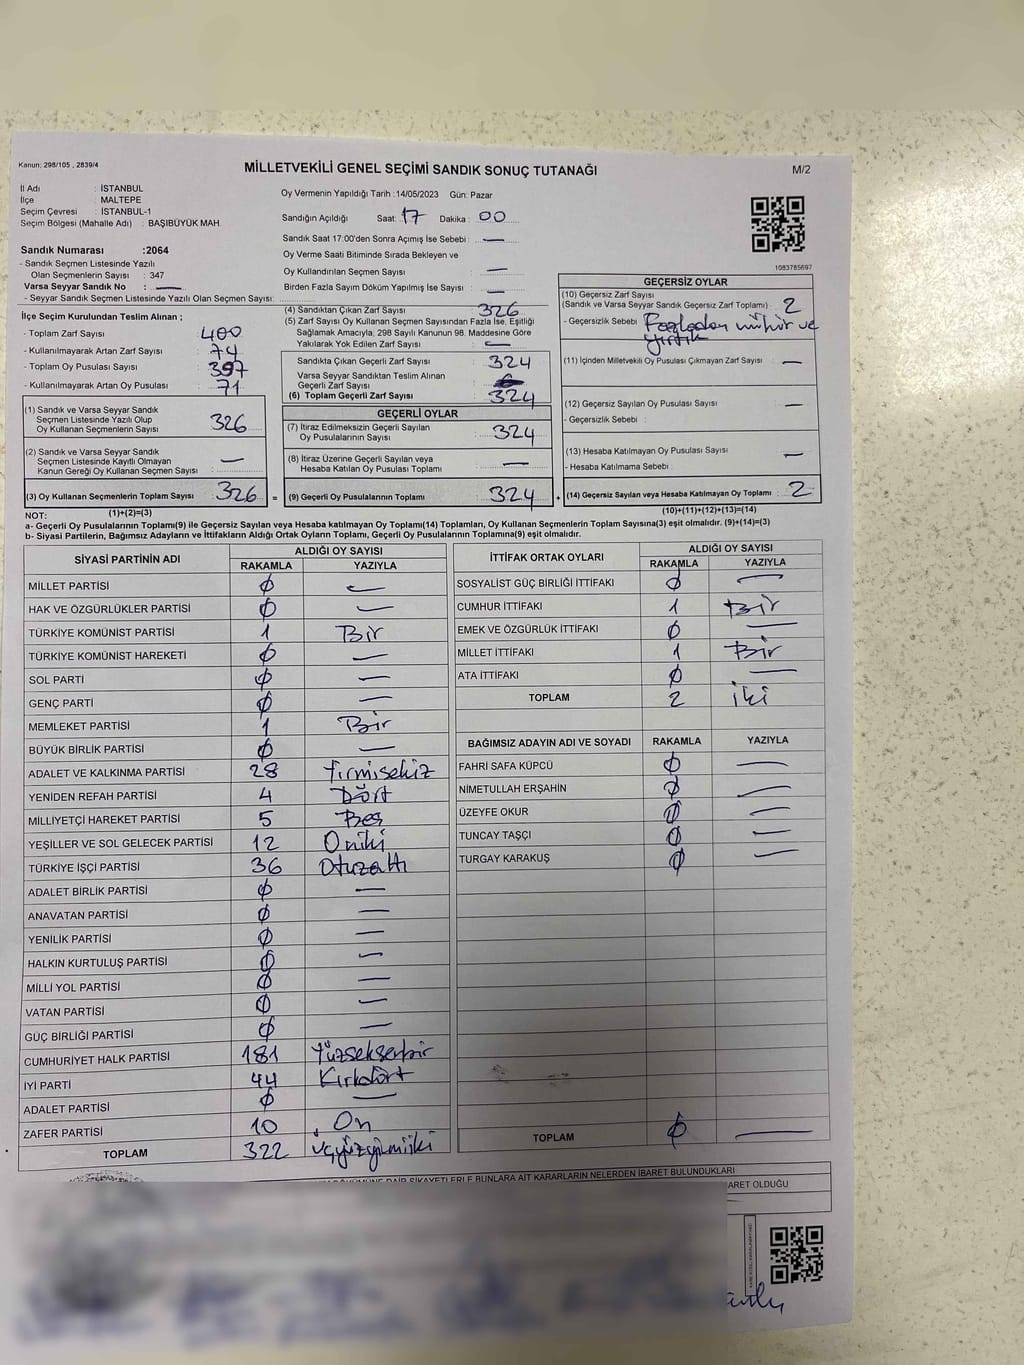 Kanun: 298/105 , 2839/4
MİLLETVEKİLİ GENEL SEÇİMİ SANDIK SONUÇ TUTANAĞI
M/2
İl Adı : İSTANBUL
İlçe : MALTEPE
Seçim Çevresi : İSTANBUL-1
Seçim Bölgesi (Mahalle Adı) : BAŞIBÜYÜK MAH.
Sandık Numarası :2064
- Sandık Seçmen Listesinde Yazılı
Olan Seçmenlerin Sayısı : 347
Varsa Seyyar Sandık No : —
- Seyyar Sandık Seçmen Listesinde Yazılı Olan Seçmen Sayısı:
İlçe Seçim Kurulundan Teslim Alınan ;
- Toplam Zarf Sayısı : 400
- Kullanılmayarak Artan Zarf Sayısı : 74
- Toplam Oy Pusulası Sayısı : 397
- Kullanılmayarak Artan Oy Pusulası : 71
(1) Sandık ve Varsa Seyyar Sandık
Seçmen Listesinde Yazılı Olup
Oy Kullanan Seçmenlerin Sayısı : 326
(2) Sandık ve Varsa Seyyar Sandık
Seçmen Listesinde Kayıtlı Olmayan
Kanun Gereği Oy Kullanan Seçmen Sayısı : —
(3) Oy Kullanan Seçmenlerin Toplam Sayısı : 326 =
(1)+(2)=(3)
Oy Vermenin Yapıldığı Tarih :14/05/2023 Gün: Pazar
Sandığın Açıldığı Saat: 17 Dakika : 00
Sandık Saat 17:00'den Sonra Açımış İse Sebebi : —
Oy Verme Saati Bitiminde Sırada Bekleyen ve
Oy Kullandırılan Seçmen Sayısı : —
Birden Fazla Sayım Döküm Yapılmış İse Sayısı : —
(4) Sandıktan Çıkan Zarf Sayısı : 326
(5) Zarf Sayısı Oy Kullanan Seçmen Sayısından Fazla İse, Eşitliği
Sağlamak Amacıyla, 298 Sayılı Kanunun 98. Maddesine Göre
Yakılarak Yok Edilen Zarf Sayısı : —
Sandıkta Çıkan Geçerli Zarf Sayısı : 324
Varsa Seyyar Sandıktan Teslim Alınan
Geçerli Zarf Sayısı :
(6) Toplam Geçerli Zarf Sayısı : 324
GEÇERLİ OYLAR
(7) İtiraz Edilmeksizin Geçerli Sayılan
Oy Pusulalarının Sayısı : 324
(8) İtiraz Üzerine Geçerli Sayılan veya
Hesaba Katılan Oy Pusulası Toplamı : —
(9) Geçerli Oy Pusulalarının Toplamı : 324 +
1083785697
GEÇERSİZ OYLAR
(10) Geçersiz Zarf Sayısı
(Sandık ve Varsa Seyyar Sandık Geçersiz Zarf Toplamı) : 2
- Geçersizlik Sebebi : Fazladan mühür ve
yırtık
(11) İçinden Milletvekili Oy Pusulası Çıkmayan Zarf Sayısı : —
(12) Geçersiz Sayılan Oy Pusulası Sayısı : —
- Geçersizlik Sebebi :
(13) Hesaba Katılmayan Oy Pusulası Sayısı : —
- Hesaba Katılmama Sebebi :
(14) Geçersiz Sayılan veya Hesaba Katılmayan Oy Toplamı : 2
(10)+(11)+(12)+(13)=(14)
NOT:
a- Geçerli Oy Pusulalarının Toplamı(9) ile Geçersiz Sayılan veya Hesaba katılmayan Oy Toplamı(14) Toplamları, Oy Kullanan Seçmenlerin Toplam Sayısına(3) eşit olmalıdır. (9)+(14)=(3)
b- Siyasi Partilerin, Bağımsız Adayların ve İttifakların Aldığı Ortak Oyların Toplamı, Geçerli Oy Pusulalarının Toplamına(9) eşit olmalıdır.
SİYASİ PARTİNİN ADI ALDIĞI OY SAYISI
RAKAMLA YAZIYLA
MİLLET PARTİSİ 0 —
HAK VE ÖZGÜRLÜKLER PARTİSİ 0 —
TÜRKİYE KOMÜNİST PARTİSİ 1 Bir
TÜRKİYE KOMÜNİST HAREKETİ 0 —
SOL PARTİ 0 —
GENÇ PARTİ 0 —
MEMLEKET PARTİSİ 1 Bir
BÜYÜK BİRLİK PARTİSİ 0 —
ADALET VE KALKINMA PARTİSİ 28 Yirmisekiz
YENİDEN REFAH PARTİSİ 4 Dört
MİLLİYETÇİ HAREKET PARTİSİ 5 Beş
YEŞİLLER VE SOL GELECEK PARTİSİ 12 Oniki
TÜRKİYE İŞÇİ PARTİSİ 36 Otuzaltı
ADALET BİRLİK PARTİSİ 0 —
ANAVATAN PARTİSİ 0 —
YENİLİK PARTİSİ 0 —
HALKIN KURTULUŞ PARTİSİ 0 —
MİLLİ YOL PARTİSİ 0 —
VATAN PARTİSİ 0 —
GÜÇ BİRLİĞİ PARTİSİ 0 —
CUMHURİYET HALK PARTİSİ 181 Yüzseksenbir
İYİ PARTİ 44 Kırkdört
ADALET PARTİSİ 0 —
ZAFER PARTİSİ 10 On
TOPLAM 322 üçyüzyirmiiki
İTTİFAK ORTAK OYLARI ALDIĞI OY SAYISI
RAKAMLA YAZIYLA
SOSYALİST GÜÇ BİRLİĞİ İTTİFAKI 0 —
CUMHUR İTTİFAKI 1 Bir
EMEK VE ÖZGÜRLÜK İTTİFAKI 0 —
MİLLET İTTİFAKI 1 Bir
ATA İTTİFAKI 0 —
TOPLAM 2 iki
BAĞIMSIZ ADAYIN ADI VE SOYADI RAKAMLA YAZIYLA
FAHRİ SAFA KÜPCÜ 0 —
NİMETULLAH ERŞAHİN 0 —
ÜZEYFE OKUR 0 —
TUNCAY TAŞÇI 0 —
TURGAY KARAKUŞ 0 —
TOPLAM 0 —
DAİR ŞİKAYETLERLE BUNLARA AİT KARARLARIN NELERDEN İBARET BULUNDUKLARI
OLDUĞU